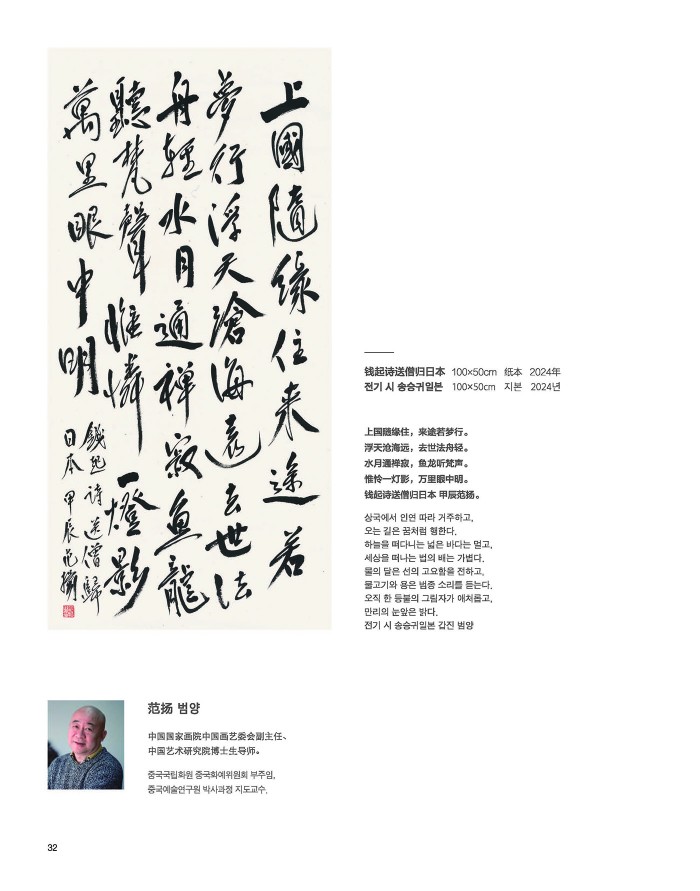 上國隨緣住来途若
夢行浮天滄海遠去世法
舟輕水月通禅寂魚龍
聽梵聲惟憐一燈影
萬里眼中明
錢起诗送僧歸
日本甲辰范揚
钱起诗送僧归日本 100×50cm 纸本 2024年
전기 시 송승귀일본 100×50cm 지본 2024년
上国随缘住，来途若梦行。
浮天沧海远，去世法舟轻。
水月通禅寂，鱼龙听梵声。
惟怜一灯影，万里眼中明。
钱起诗送僧归日本 甲辰范扬。
상국에서 인연 따라 거주하고,
오는 길은 꿈처럼 행한다.
하늘을 떠다니는 넓은 바다는 멀고,
세상을 떠나는 법의 배는 가볍다.
물의 달은 선의 고요함을 전하고,
물고기와 용은 범종 소리를 듣는다.
오직 한 등불의 그림자가 애처롭고,
만리의 눈앞은 밝다.
전기 시 송승귀일본 갑진 범양
范扬 범양
中国国家画院中国画艺委会副主任、
中国艺术研究院博士生导师。
중국국립화원 중국화예위원회 부주임,
중국예술연구원 박사과정 지도교수.
32